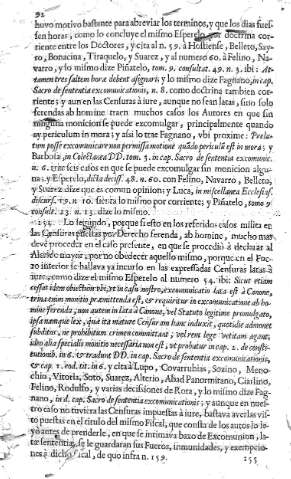 92
huvo motivo bastante para abreviar los terminos, y que los dias fues-
sen horas, como lo concluye el mismo Esperelo por doctrina cor-
riente entre los Doctores, y cita al n. 59. à Hostiense, Belleto, Say-
ro, Bonacina, Tiraquelo, y Suarez, y al numero 60. à Felino, Na-
varro, y lo mismo dize Piñatelo, tom. 9. consult. 49. n. 3. ibi:
tamen tres saltem horæ debent assignari: y lo mismo dize Fagnano, in cap.
Sacro de sententia excomunicationis, n. 8. como doctrina tambien cor-
riente; y aun en las Censuras à iure, aunque no sean latas, sino solo
ferendas ab homine traen muchos casos los Autores en que sin
monicion se puede excomulgar, principalmente quando
ay periculum in mora; y asi lo trae Fagnano, vbi proxime:
tum posse excomunicare non permissa motione quando periculũ est in mora: y
Barbosa, in Colectanea DD. tom. 5. in cap. Sacro de sententia excomunic.
n. 6. trae seis casos en que se puede excomulgar sin monicion algu-
na: y Esperelo, dicta decis. 48. n. 60. con Felino, Navarro, Belleto,
y Suarez dize que es comun opinion; y Luca, in miscellanea Ecclesiast.
discurs. 19. n. 10. sienta lo mismo por corriente; y Piñatelo, tomo 9
consult. 23. n. 13. dize lo mismo.
Lo segundo, porque si esto en los referidos casos milita en
las Censuras puestas por Derecho ferenda, ab homine, mucho mas
deve proceder en el caso presente, en que se procediò à declarar al
Alcalde mayor, por no obedecer aquello mismo, porque en el Fue-
ro interior se hallava ya incurso en las expressadas Censuras latas à
iure, como dize el mismo Esperelo al numero 54. ibi: Sicut etiam
cessat idem obiectum vbi, vt in casu nostro, excomunicatio lata est à Canone,
trina enim monitio præmittenda est, & requiritur in excomunicatione ab ho-
mine ferenda; non autem in lata à Canone, vel Statuto legitime promulgato,
ipsa namque lex, quæ ita mature Censuram hanc induxit, quotidie admonet
subditos, ne prohibitum crimen committant; vel rem lege vetitam agant,
ideo alia specialis monitio necessaria non est, vt probatur in cap. 2. de consti-
tutionib. in 6. & tradunt DD. in cap. Sacro de sententia excomunicationis,
& cap. 1. eod. tit. in 6. y cita à Lupo, Covarrubias, Sozino, Meno-
chio, Vitoria, Soto, Suarez, Alterio, Abad Panormitano, Ciarlino,
Felino, Rodulfo, y varias decisiones de Rota, y lo mismo dize Fag-
nano, in d. cap. Sacro de sententia excomunicationis; y aunque en nues-
tro caso no tuviera las Censuras impuestas à iure, bastava averlas vis-
to puestas en el titulo del mismo Fiscal, que consta de los autos lo le-
yò antes de prenderle, en que se intimava baxo de Excomunion, la-
tæ sententiæ, se le guardaran sus Fueros, inmunidades, y exempcio-
nes à dicho Fiscal, de quo infra n. 159.
155